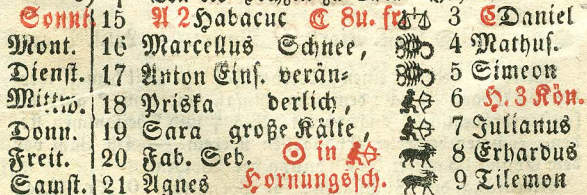 Sonnt. 15 A 2 Habacuc ☾ 8 u. fr. ♎ 3 C Daniel
Mont. 16 Marcellus Schnee, ♏ 4 Mathus.
Dienst. 17 Anton Eins. verän- ♏ 5 Simeon
Mittw. 18 Priska derlich, ♐ 6 H. 3 Kön.
Donn. 19 Sara große Kälte, ♐ 7 Julianus
Freit. 20 Fab. Seb. ☉ in ♐ 8 Erhardus
Samst. 21 Agnes Hornungssch. 9 Tilemon